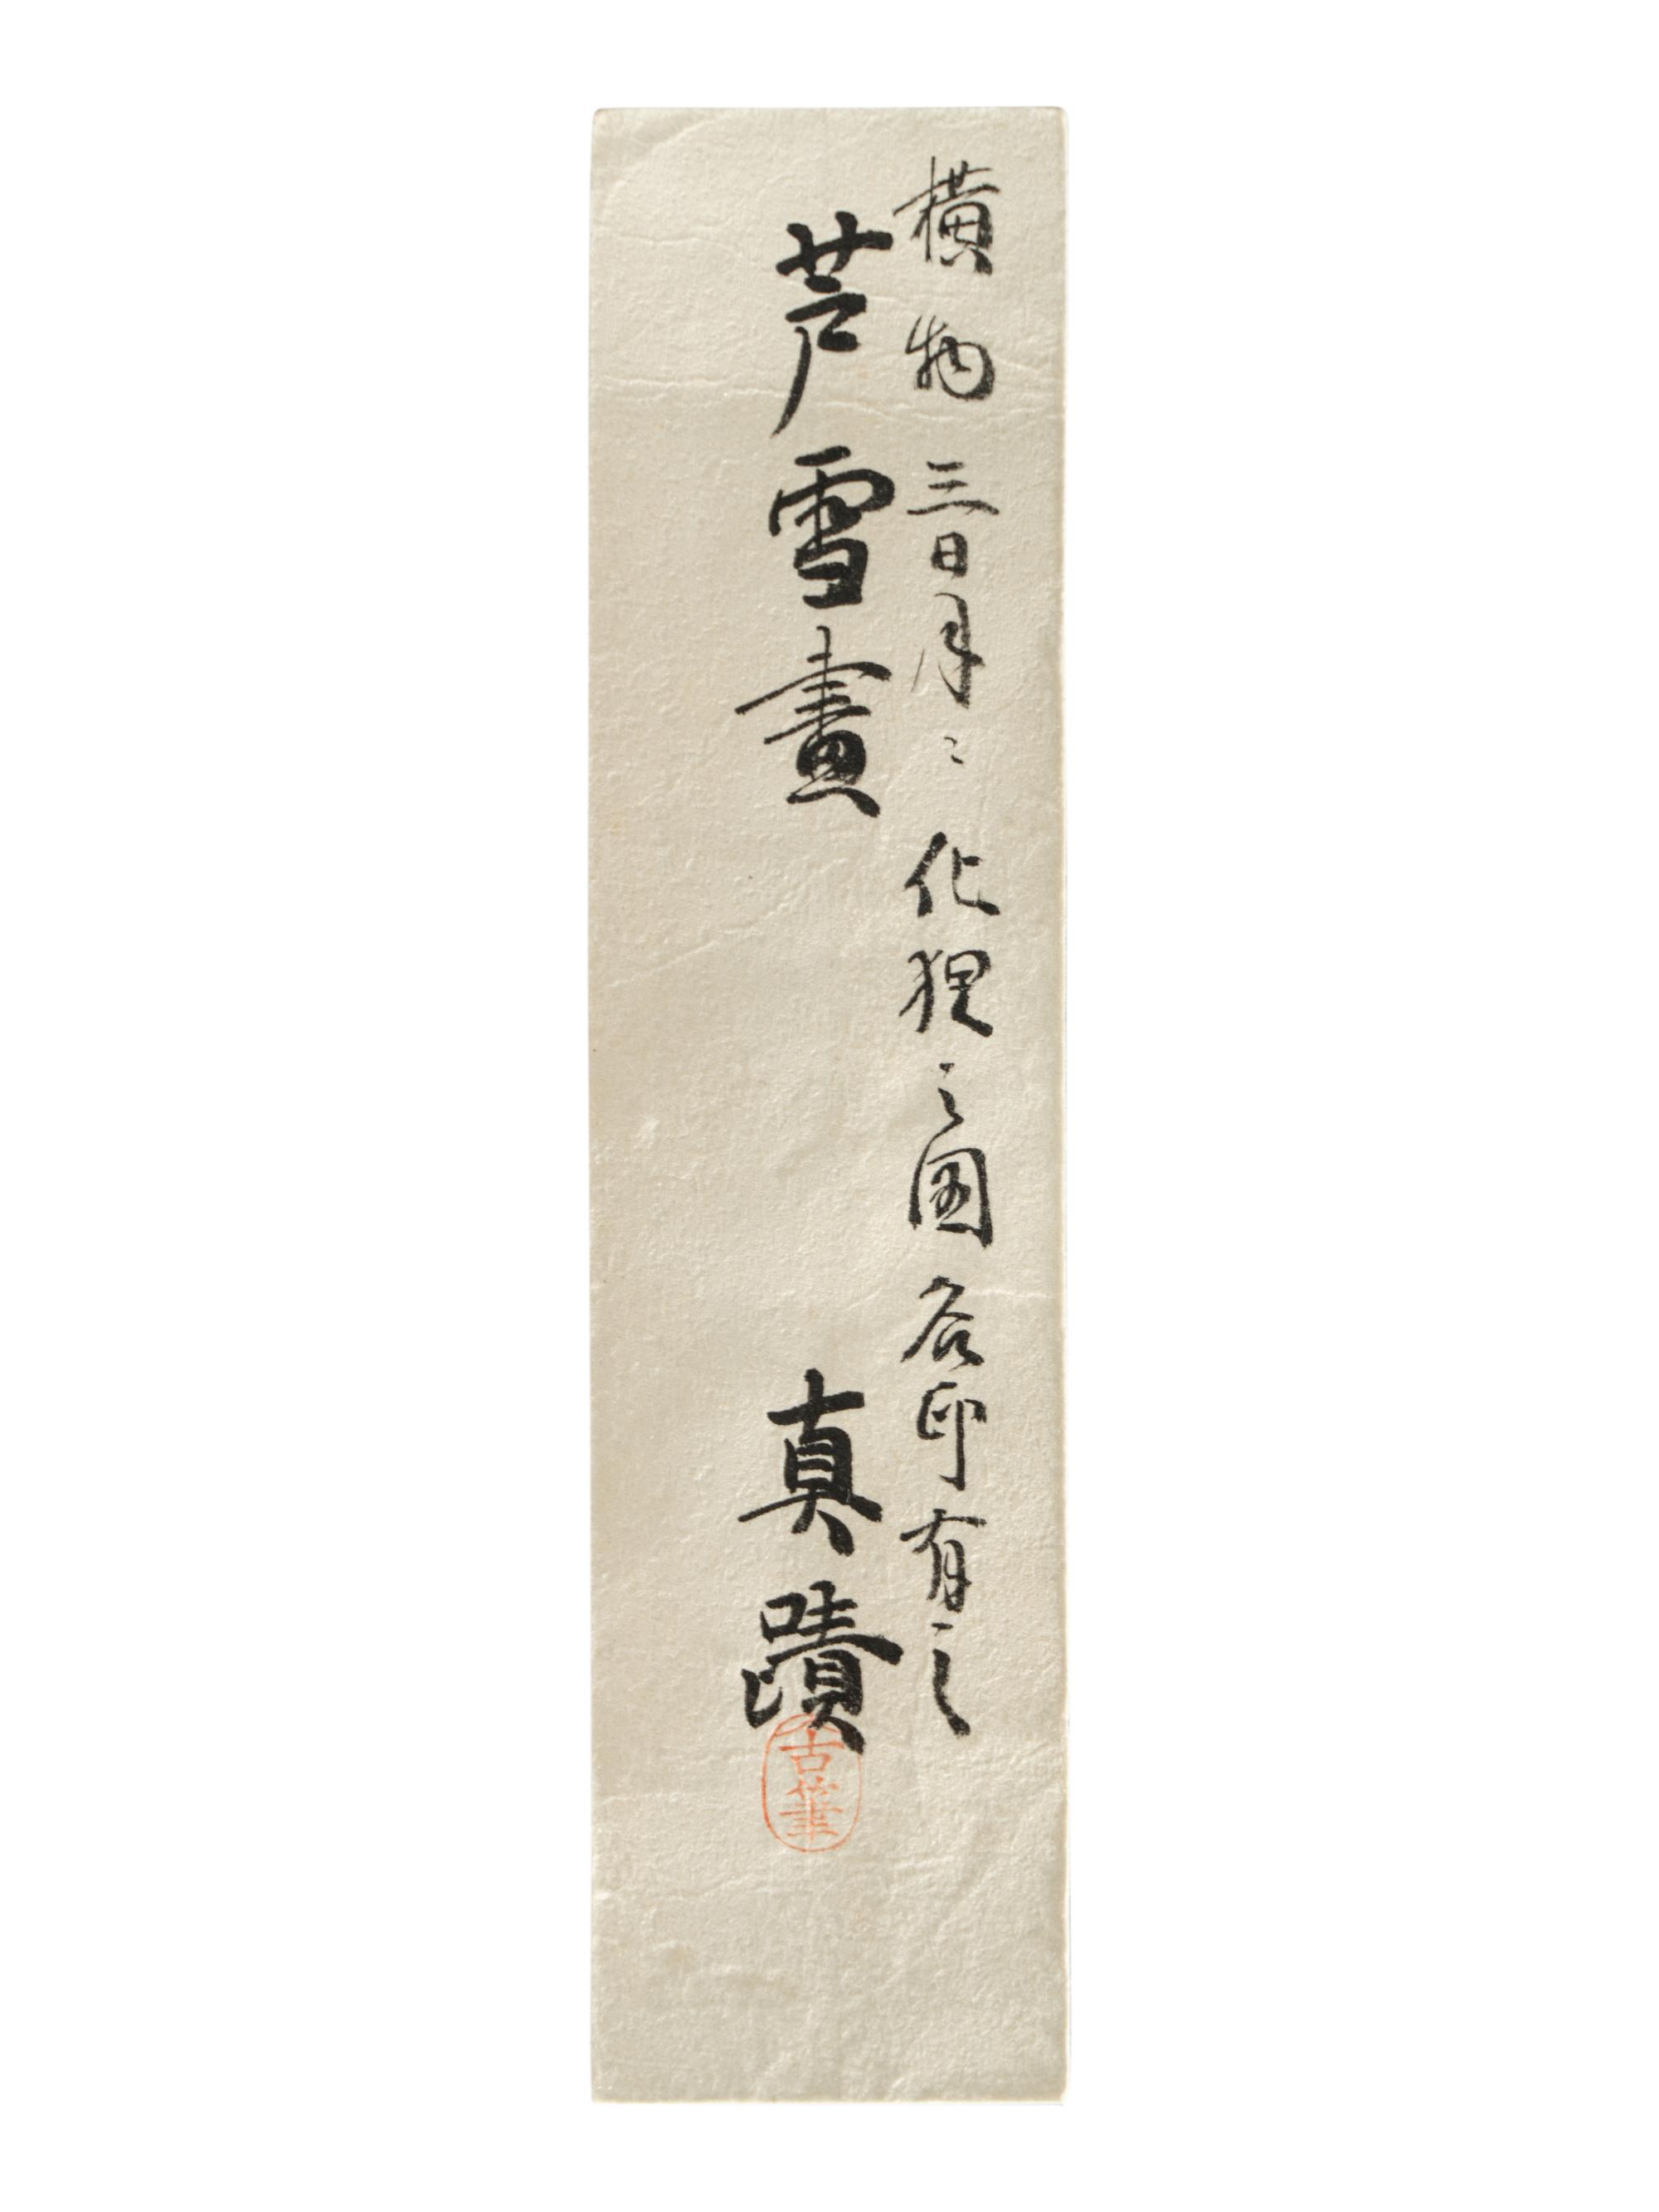 横物 三日月ニ 化狸之図 名印有之
芦雪畫 真蹟
古筆